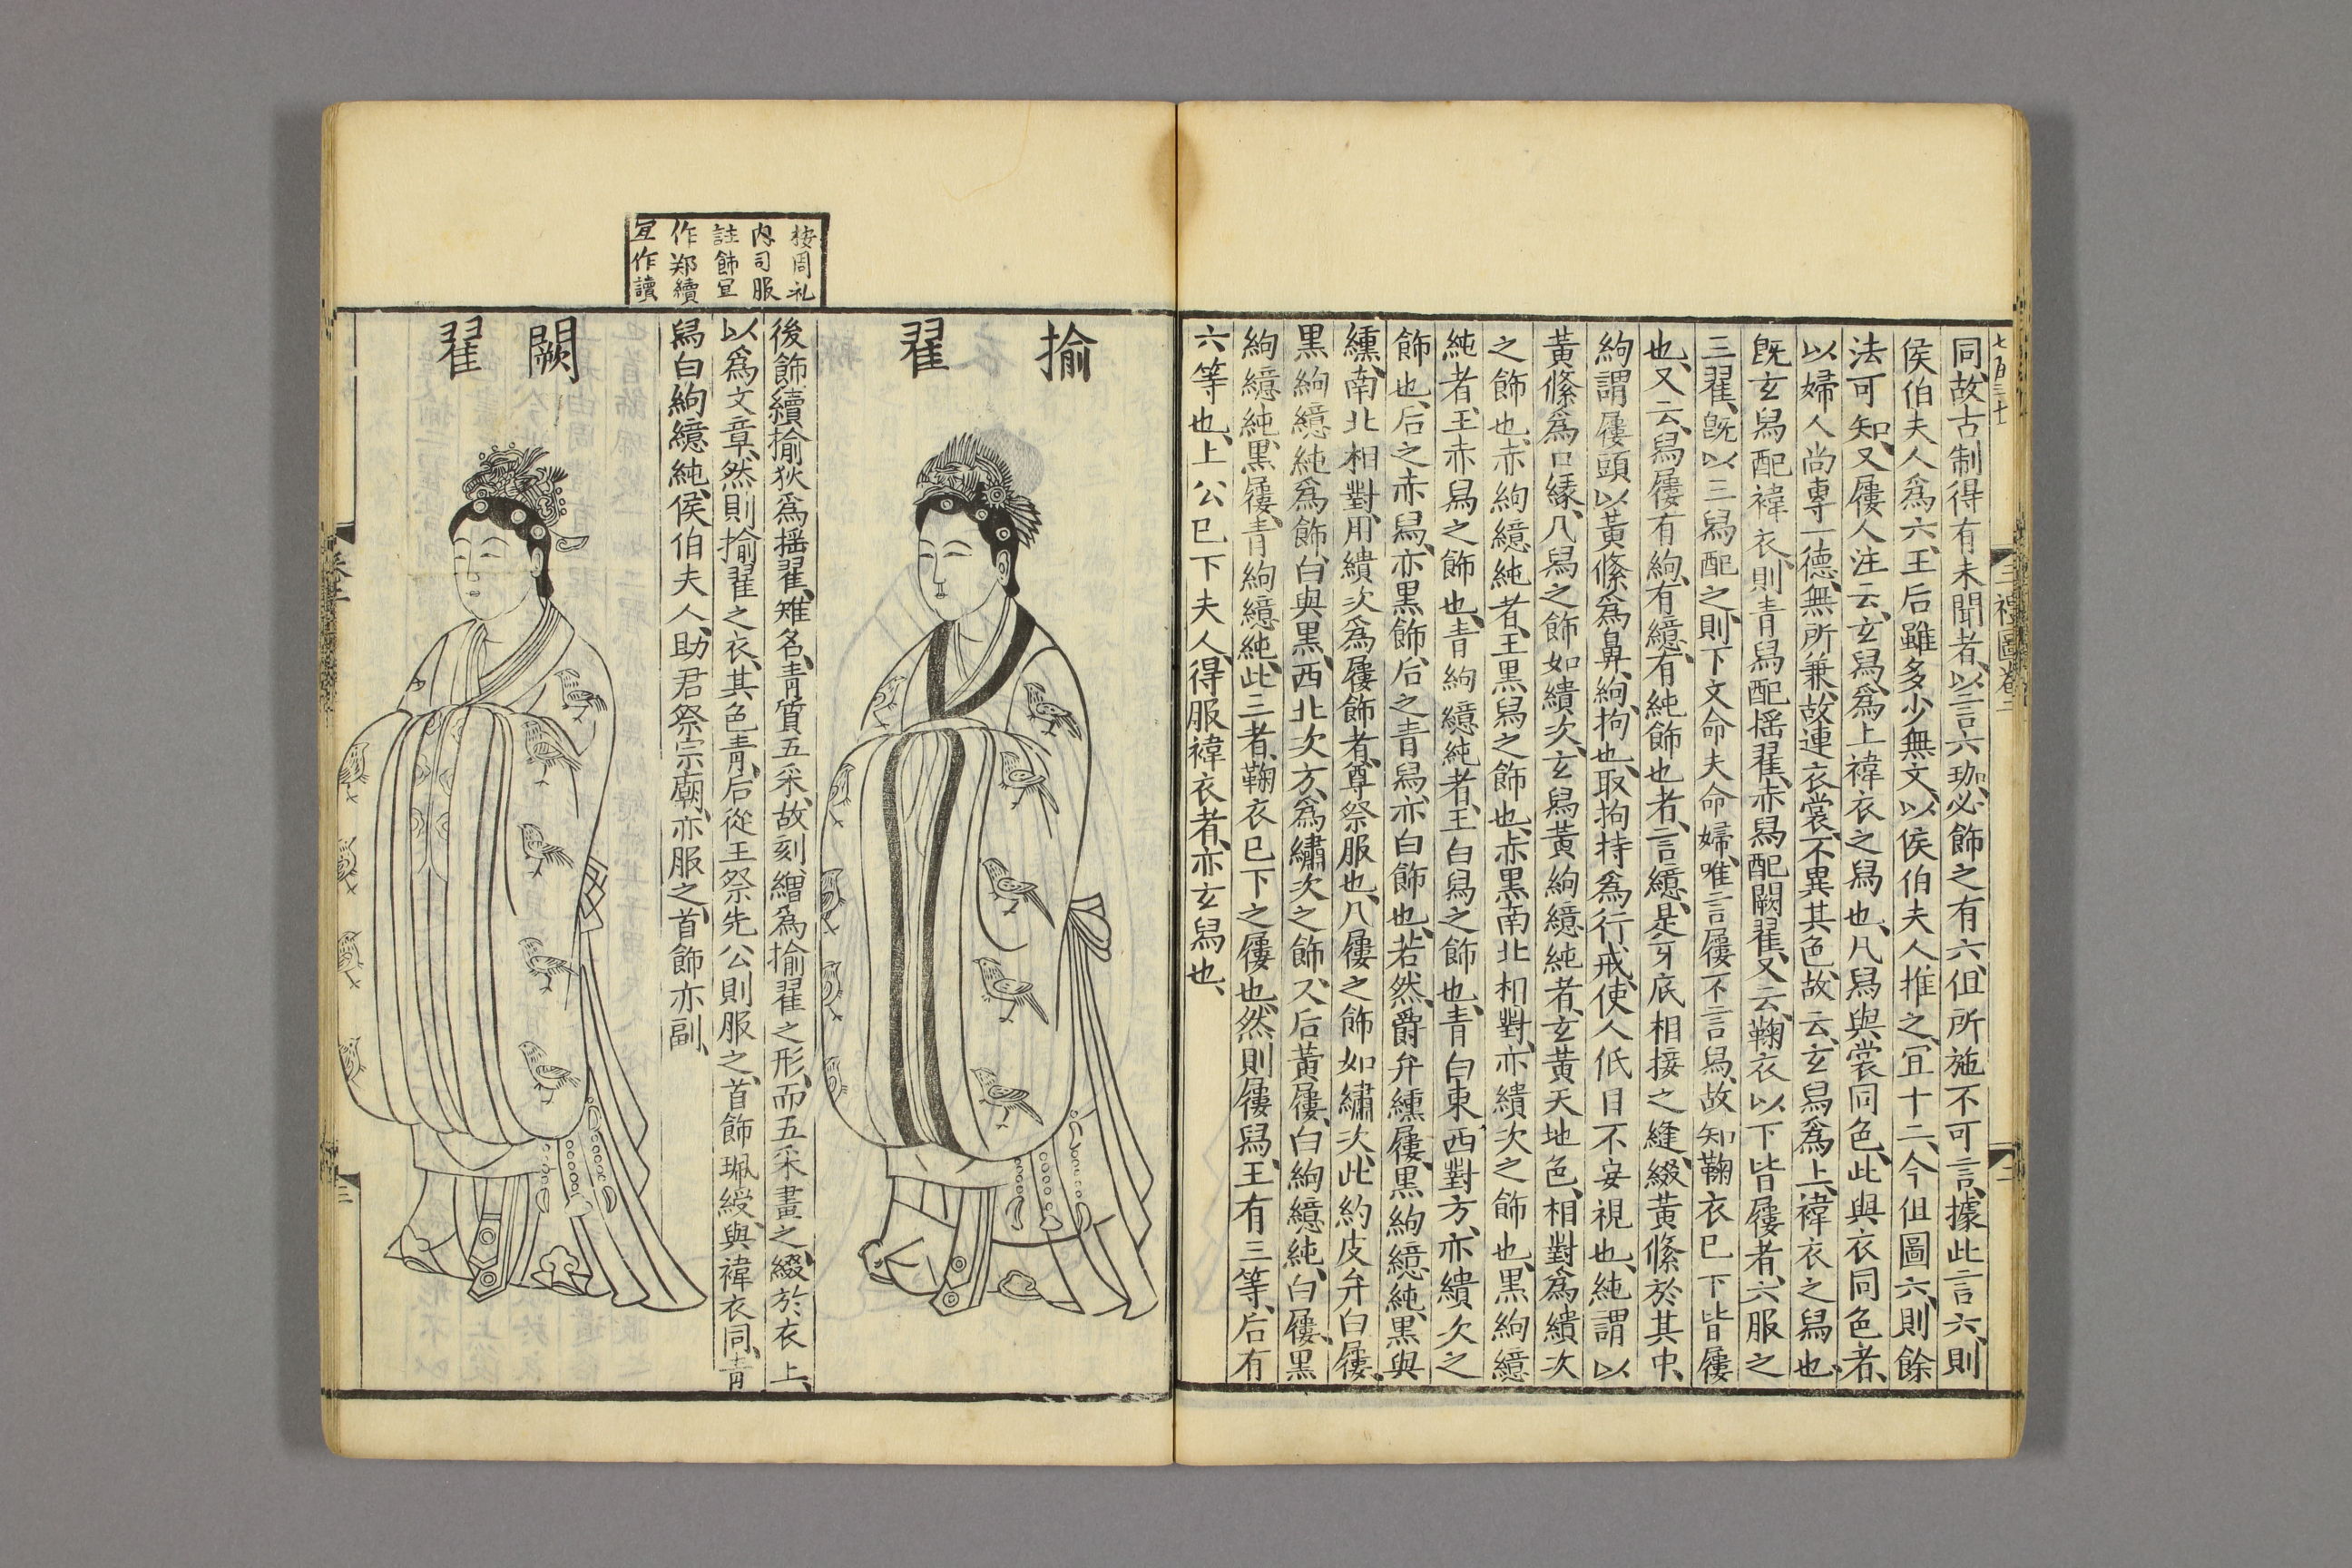 七百三十
三禮圖卷二
二
同故古制得有未聞者以言六珈必飾之有六但所施不可言據此言六則
侯伯夫人爲六王后雖多少無文以侯伯夫人推之宜十二今但圖六則餘
法可知又屨人注云玄舄爲上褘衣之舄也凡舄與裳同色此與衣同色者
以婦人尚專一德無所兼故連衣裳不異其色故云玄舄爲上褘衣之舄也
旣玄舄配褘衣則青舄配揺翟赤舄配闕翟又云鞠衣以下皆屨者六服之
三翟旣以三舄配之則下文命夫命婦唯言屨不言舄故知鞠衣已下皆屨
也又云舄屨有絇有繶有純飾也者言繶是牙底相接之縫綴黃絛於其中
絇謂屨頭以黃絛爲鼻絇拘也取拘持爲行戒使人低目不妄視也純謂以
黃絛爲口緣凡舄之飾如繢次玄舄黃絇繶純者玄黃天地色相對爲繢次
之飾也赤絇繶純者王黑舄之飾也赤黑南北相對亦繢次之飾也黑絇繶
純者王赤舄之飾也青絇繶純者王白舄之飾也青白東西對方亦繢次之
飾也后之赤舄亦黑飾后之青舄亦白飾也若然爵弁纁屨黑絇繶純黑與
纁南北相對用繢次爲屨飾者尊祭服也凡屨之飾如繡次此約皮弁白屨
黑絇繶純爲飾白與黑西北次方爲繡次之飾又后黃屨白絇繶純白屨黑
絇繶純黑屨青絇繶純此三者鞠衣已下之屨也然則屨舄王有三等后有
六等也上公已下夫人得服褘衣者亦玄舄也
按周礼
内司服
註飾宜
作郑續
宜作讀
揄翟
後飾續揄狄爲揺翟雉名青質五采故刻繒爲揄翟之形而五采畫之綴於衣上
以爲文章然則揄翟之衣其色青后從王祭先公則服之首飾珮綬與褘衣同青
舄白絇繶純侯伯夫人助君祭宗廟亦服之首飾亦副
闕翟
三